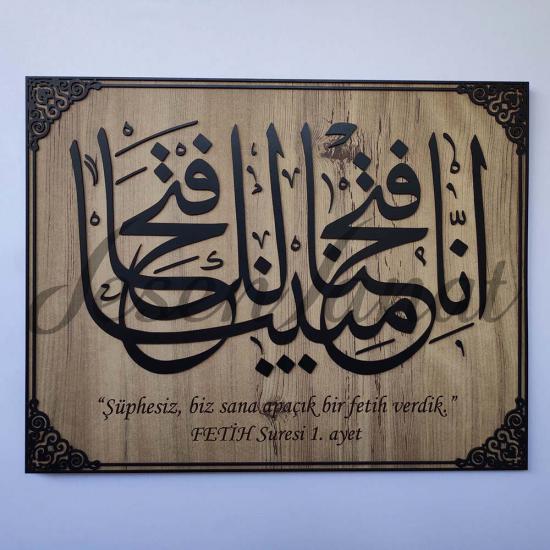 إنا فتحنا لك فتحا مبينا
“Şüphesiz, biz sana apaçık bir fetih verdik.”
FETİH Suresi 1. ayet